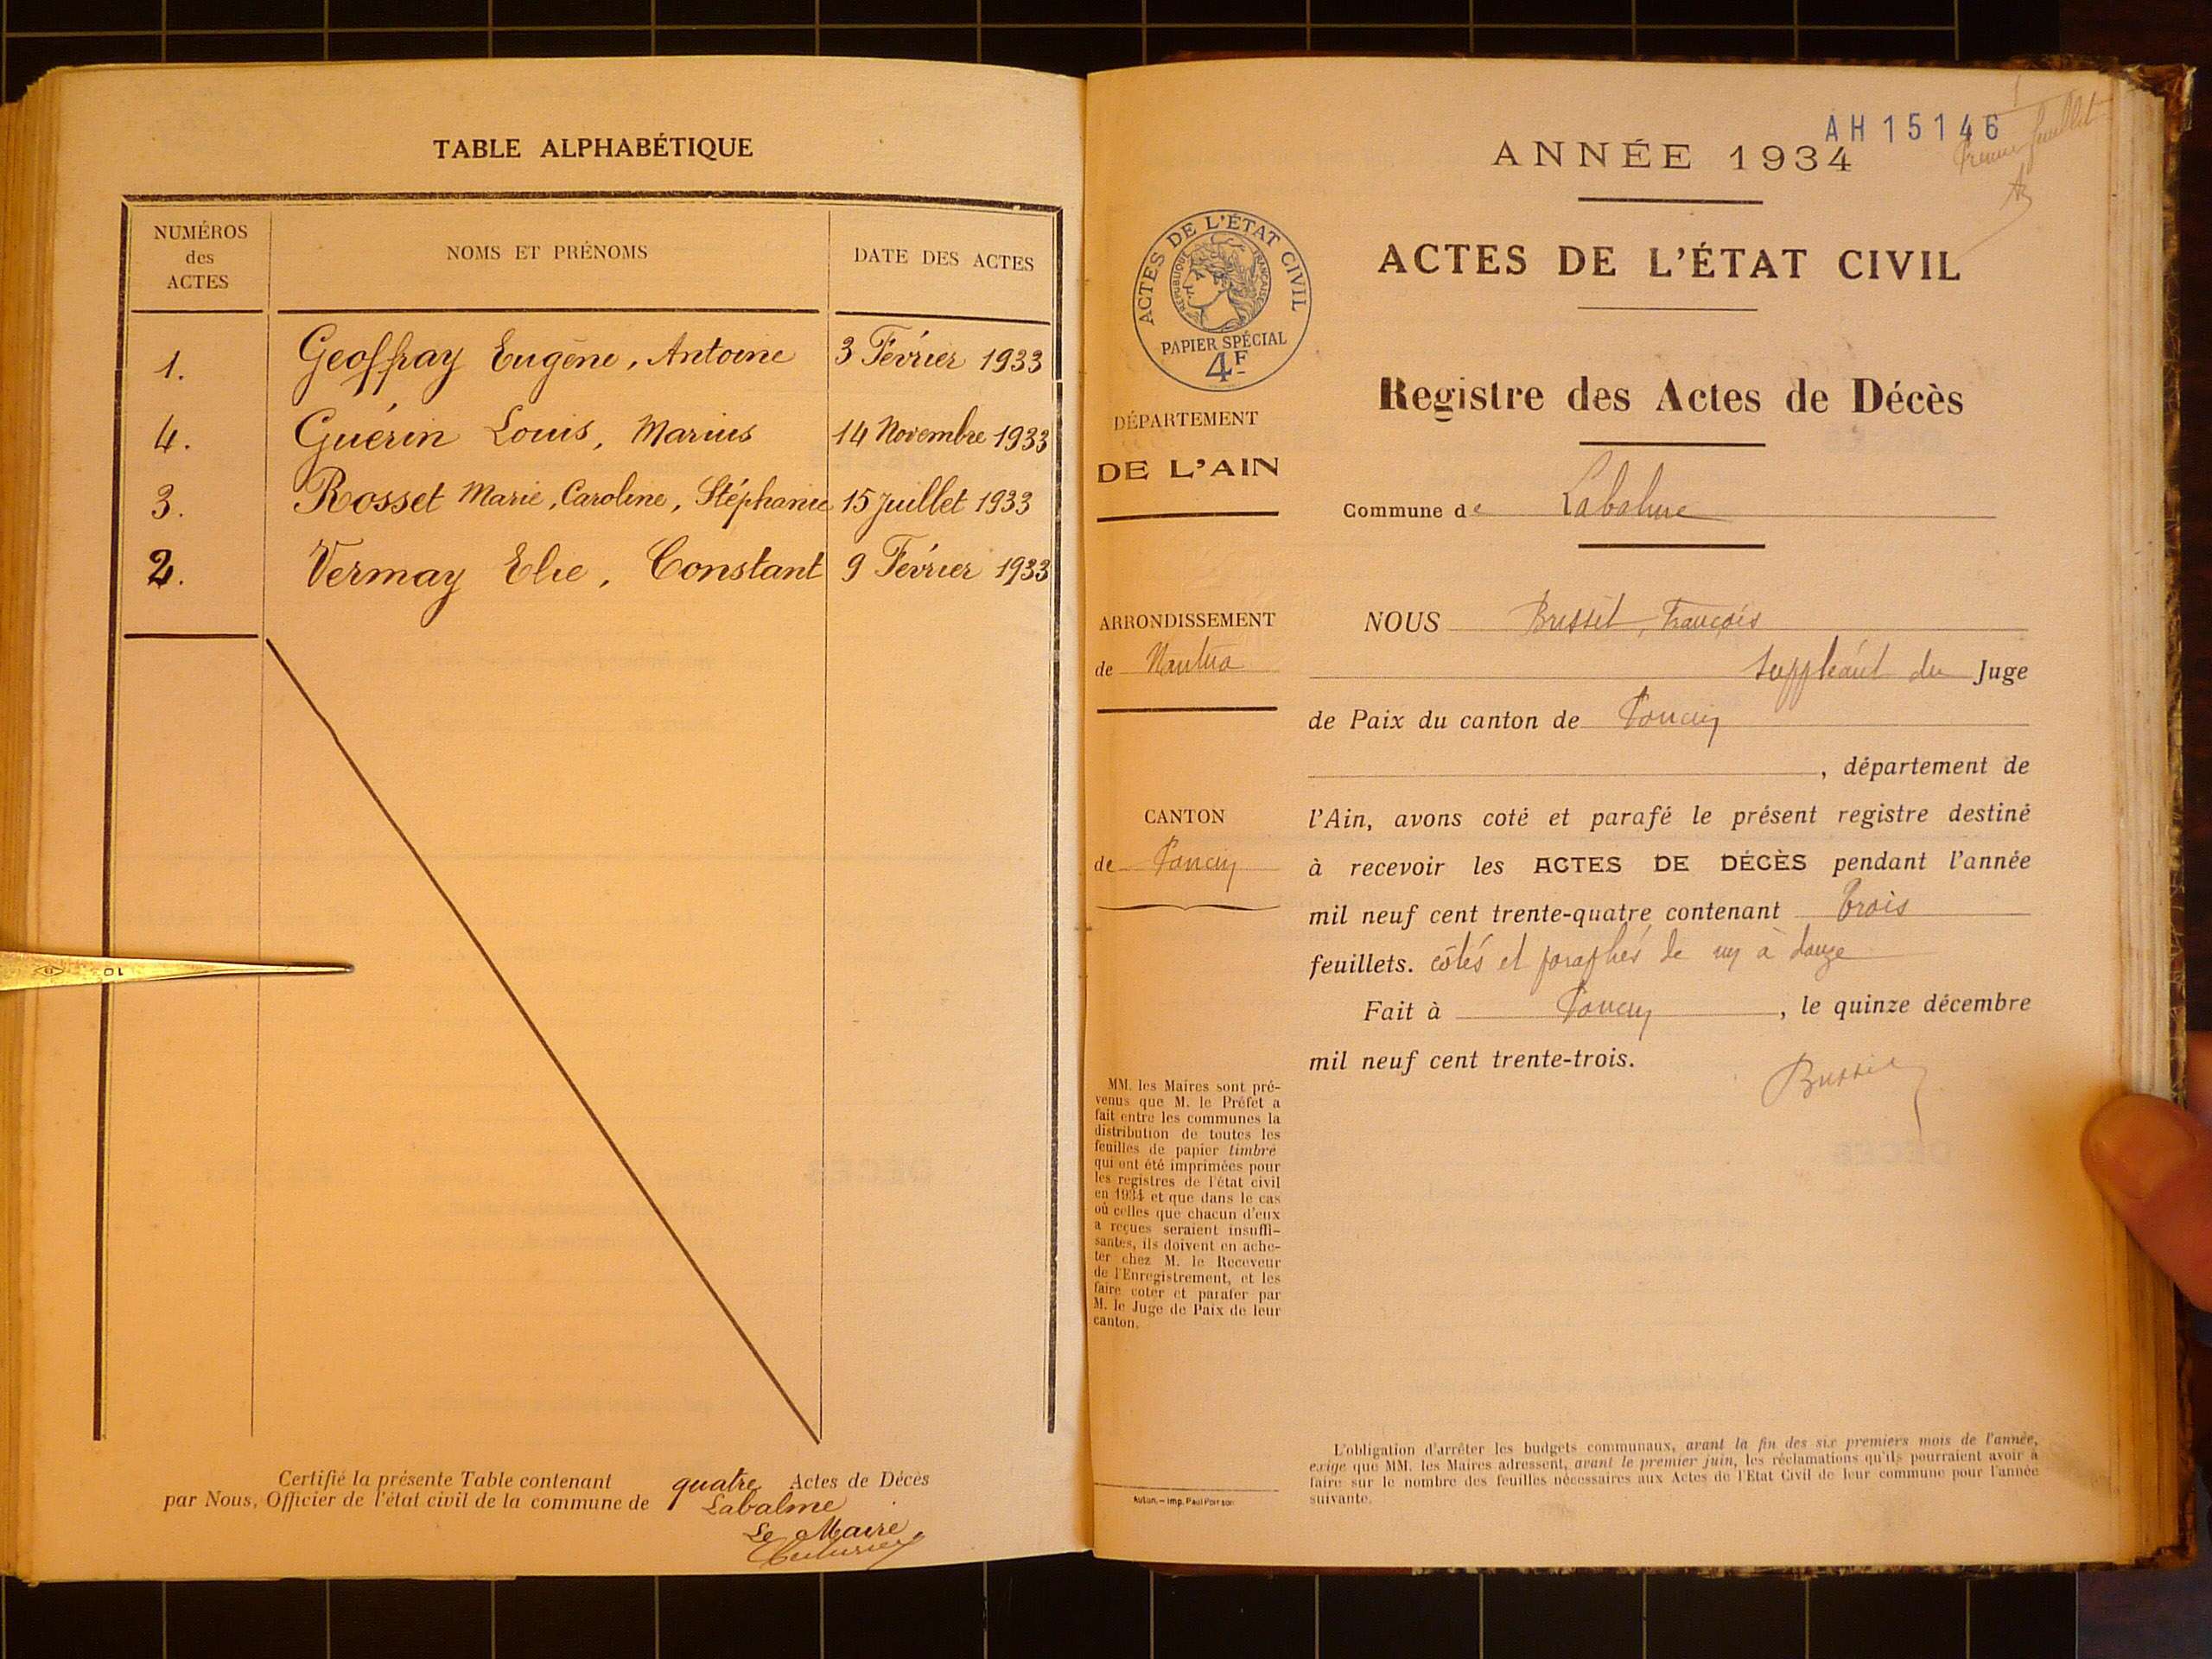 TABLE ALPHABÉTIQUE
NUMÉROS
des
ACTES
NOMS ET PRÉNOMS
DATE DES ACTES
1. Geoffray Eugène, Antoine 3 Février 1933
4. Guérin Louis, Marius 14 Novembre 1933
3. Rosset Marie, Caroline, Stéphanie 15 Juillet 1933
2. Vermay Elie, Constant 9 Février 1933
Certifié la présente Table contenant quatre Actes de Décès
par Nous, Officier de l'état civil de la commune de Labalme
Le Maire
AH 15146
Premier feuillet
ANNÉE 1934
ACTES DE L'ÉTAT CIVIL
RÉPUBLIQUE FRANÇAISE
PAPIER SPÉCIAL
4F
ACTES DE L'ÉTAT CIVIL
Registre des Actes de Décès
DÉPARTEMENT
DE L'AIN
Commune de Labalme
ARRONDISSEMENT
de Nantua
CANTON
de Poncin
NOUS François
suppléant du Juge
de Paix du canton de Poncin
, département de
l'Ain, avons coté et parafé le présent registre destiné
à recevoir les ACTES DE DÉCÈS pendant l'année
mil neuf cent trente-quatre contenant trois
feuillets. côtés et paraphés de un à douze
Fait à Poncin, le quinze décembre
mil neuf cent trente-trois.
MM. les Maires sont pré-
venus que M. le Préfet a
fait entre les communes la
distribution de toutes les
feuilles de papier timbré
qui ont été imprimées pour
les registres de l'état civil
en 1934 et que dans le cas
où celles que chacun d'eux
a reçues seraient insuffi-
santes, ils doivent en ache-
ter chez M. le Receveur
de l'Enregistrement, et les
faire coter et parafer par
M. le Juge de Paix de leur
canton.
Autun. — Imp. Paul Poirson
L'obligation d'arrêter les budgets communaux, avant la fin des six premiers mois de l'année,
exige que MM. les Maires adressent, avant le premier juin, les réclamations qu'ils pourraient avoir à
faire sur le nombre des feuilles nécessaires aux Actes de l'Etat Civil de leur commune pour l'année
suivante.